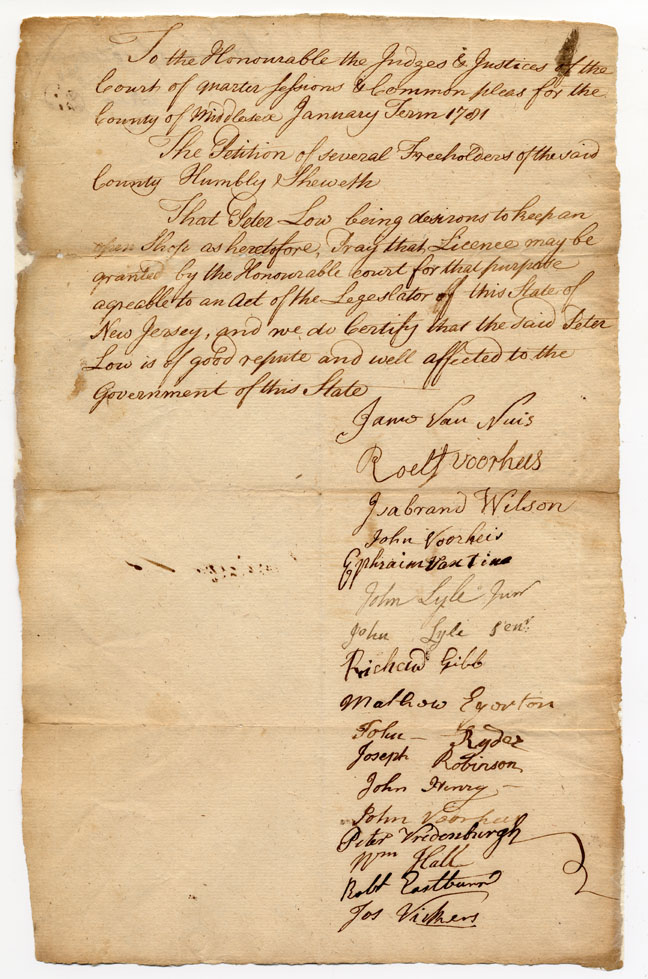 To the Honourable the Judges & Justices of the
Court of quarter sessions & Common pleas for the
County of Middlesex January Term 1781
The Petition of several Freeholders of the said
County Humbly Sheweth
That Peter Low being desirons to keep an
open Shop as heretofore, Pray that Licence may be
granted by the Honourable court for that purpose
agreable to an Act of the Legeslator of this State of
New Jersey, and we do Certify that the said Peter
Low is of good repute and well affected to the
Government of this State
Van Nuis
Roelf Voorhees
Isabrand Wilson
John Voorheis
Ephraim Vantine
John Lyle Junr
John Lyle Senr.
Richard Gibb
Mathow Evorton
John Ryder
Joseph Robinson
John Henry
John Voorhees
Peter Vredenburgh
Wm Hall
Robt Eastburn
Jos Vickers